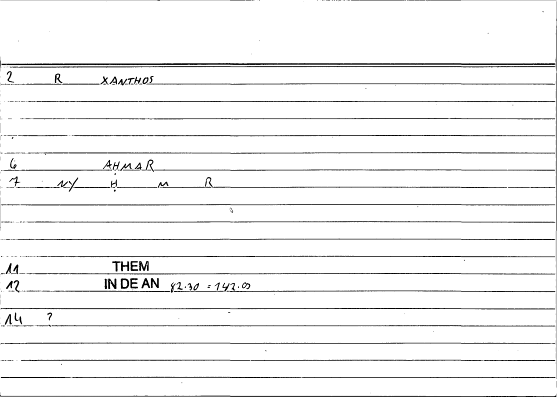 2 R XANTHOS
6 AHMAR
7 NY Ḥ M R
11 THEM
12 IN DE AN 92.30 = 142.05
14 ?